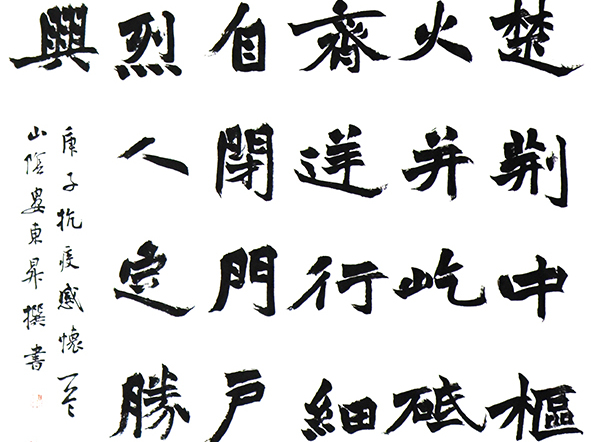 楚荆中樞
火并屹砥
齊逆行細
自閉門戶
烈人定勝
興
庚子抗疫感懷
山陰婁東昇撰書